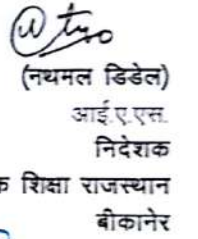 (नथमल डिडेल)
आई.ए.एस.
निदेशक
शिक्षा राजस्थान
बीकानेर